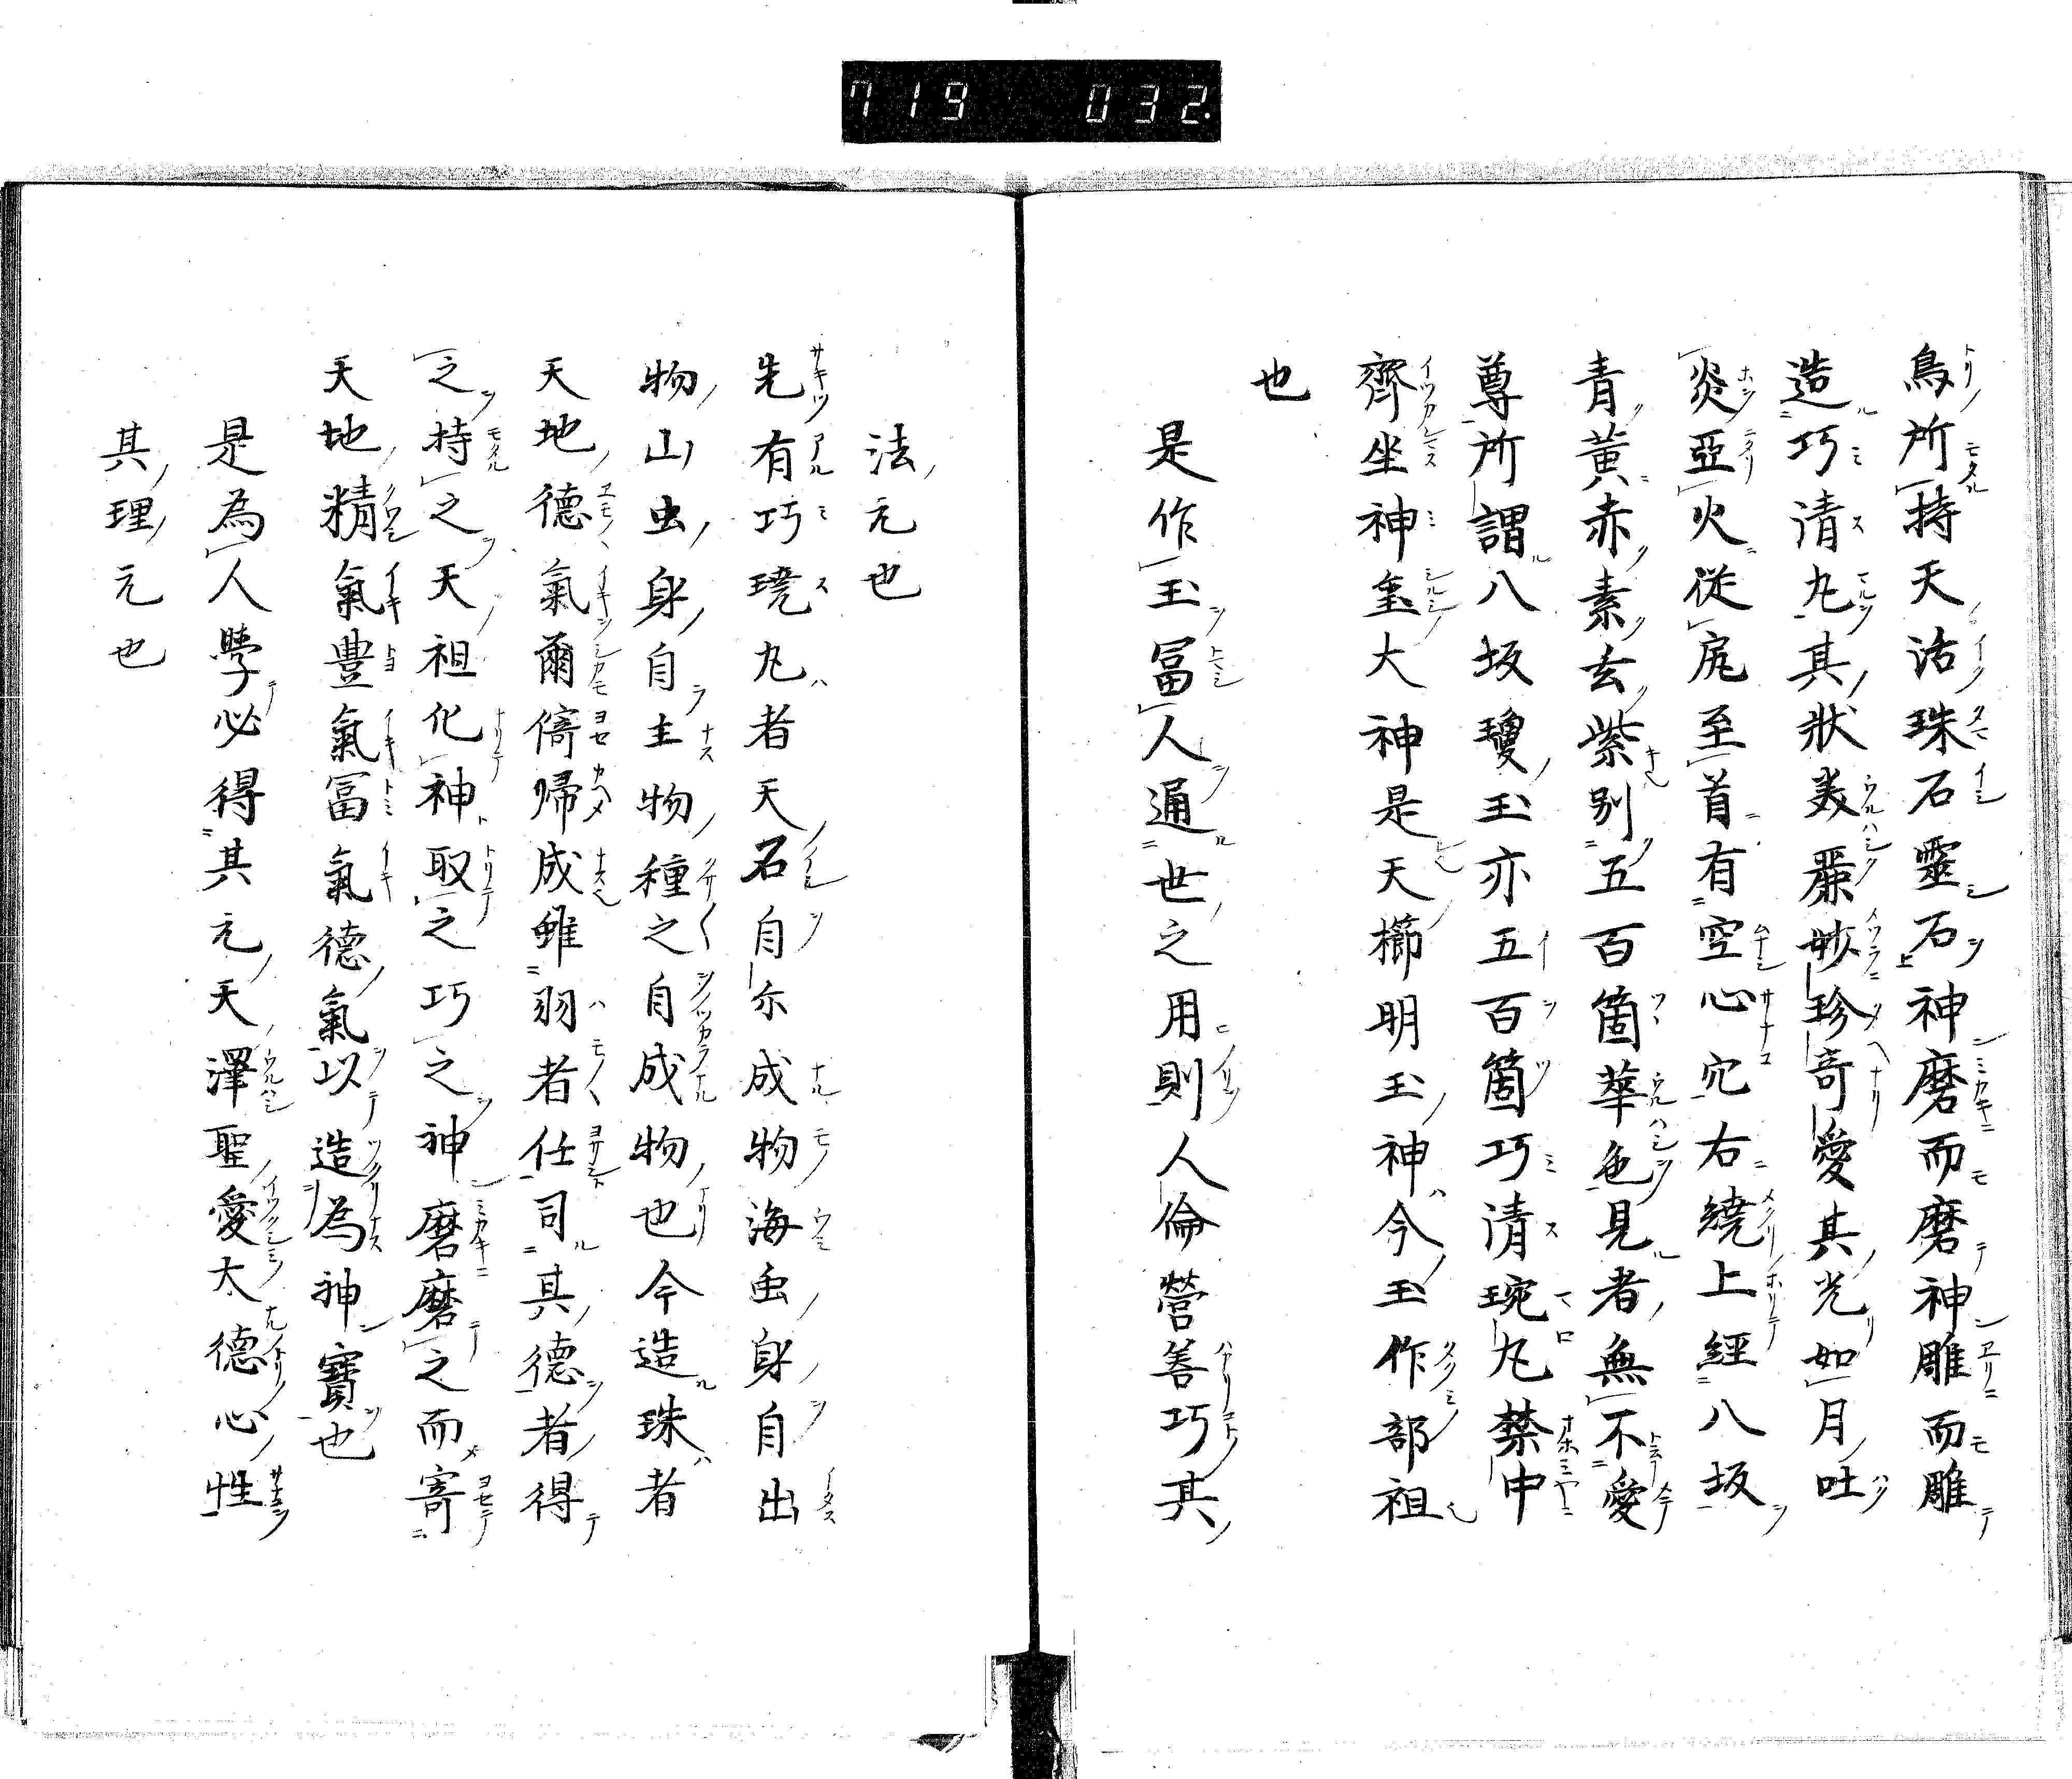 719 032.
鳥所持天活珠石靈石神磨而磨神雕而雕
造巧清丸其狀美麗妙珍奇愛其光如月吐
炎亞火從尻至首有空心穴右繞上經八坂
青黄赤素玄紫別五百箇華色見者無不愛
尊所謂八坂瓊玉亦五百箇巧清琬丸禁中
齊坐神璽大神是天櫛明玉神今玉作部祖
也
是作玉冨人通世之用則人倫營善巧其
法元也
先有巧琓丸者天石自尓成物海虫身自出
物山虫身自主物種之自成物也今造珠者
天地德氣爾倚帰成雖羽者任司其德者得
之持之天祖化神取之巧之神磨磨之而寄
天地精氣豐氣冨氣德氣以造為神寶也
是為人學必得其元天澤聖愛大德心性
其理元也